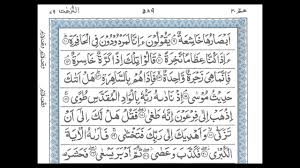 عم ٣٠ ٥٨٩ النزعت ٧٩
اَبْصَارُهَا خَاشِعَةٌ ۝ يَقُوْلُوْنَ ءَاِنَّا لَمَرْدُوْدُوْنَ فِى الْحَافِرَةِ ۝
ءَاِذَا كُنَّا عِظَامًا نَّخِرَةً ۝ قَالُوْا تِلْكَ اِذًا كَرَّةٌ خَاسِرَةٌ ۝
فَاِنَّمَا هِىَ زَجْرَةٌ وَّاحِدَةٌ ۝ فَاِذَا هُمْ بِالسَّاهِرَةِ ۝ هَلْ اَتٰىكَ
حَدِيْثُ مُوْسٰى ۝ اِذْ نَادٰىهُ رَبُّهٗ بِالْوَادِ الْمُقَدَّسِ طُوًى ۝
اِذْهَبْ اِلٰى فِرْعَوْنَ اِنَّهٗ طَغٰى ۝ فَقُلْ هَلْ لَّكَ اِلٰٓى اَنْ
تَزَكّٰى ۝ وَاَهْدِيَكَ اِلٰى رَبِّكَ فَتَخْشٰى ۝ فَاَرٰىهُ الْاٰيَةَ
الْكُبْرٰى ۝ فَكَذَّبَ وَعَصٰى ۝ ثُمَّ اَدْبَرَ يَسْعٰى ۝ فَحَشَرَ